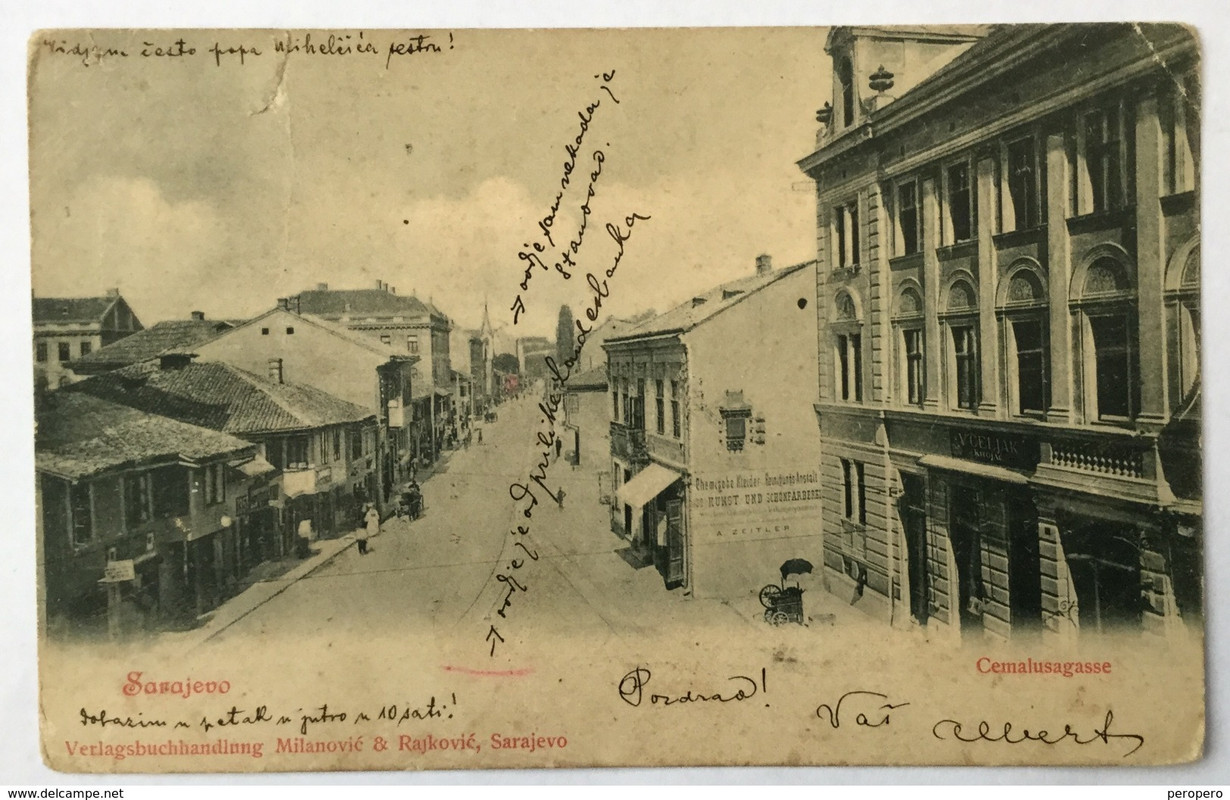 Vidjam često popa Mihelčića sestru!
→ ovdje sam nekada je
stanovao.
→ ovdje je od prilike Landesbanka
VČELJAK
Chemische Kleider-Reinigungs-Anstalt
KUNST UND SCHÖNFÄRBEREI
A. ZEITLER
Sarajevo
Cemalusagasse
Pozdrav!
dolazim u petak u jutro u 10 sati!
Vaš Albert
Verlagsbuchhandlung Milanović & Rajković, Sarajevo
peropero